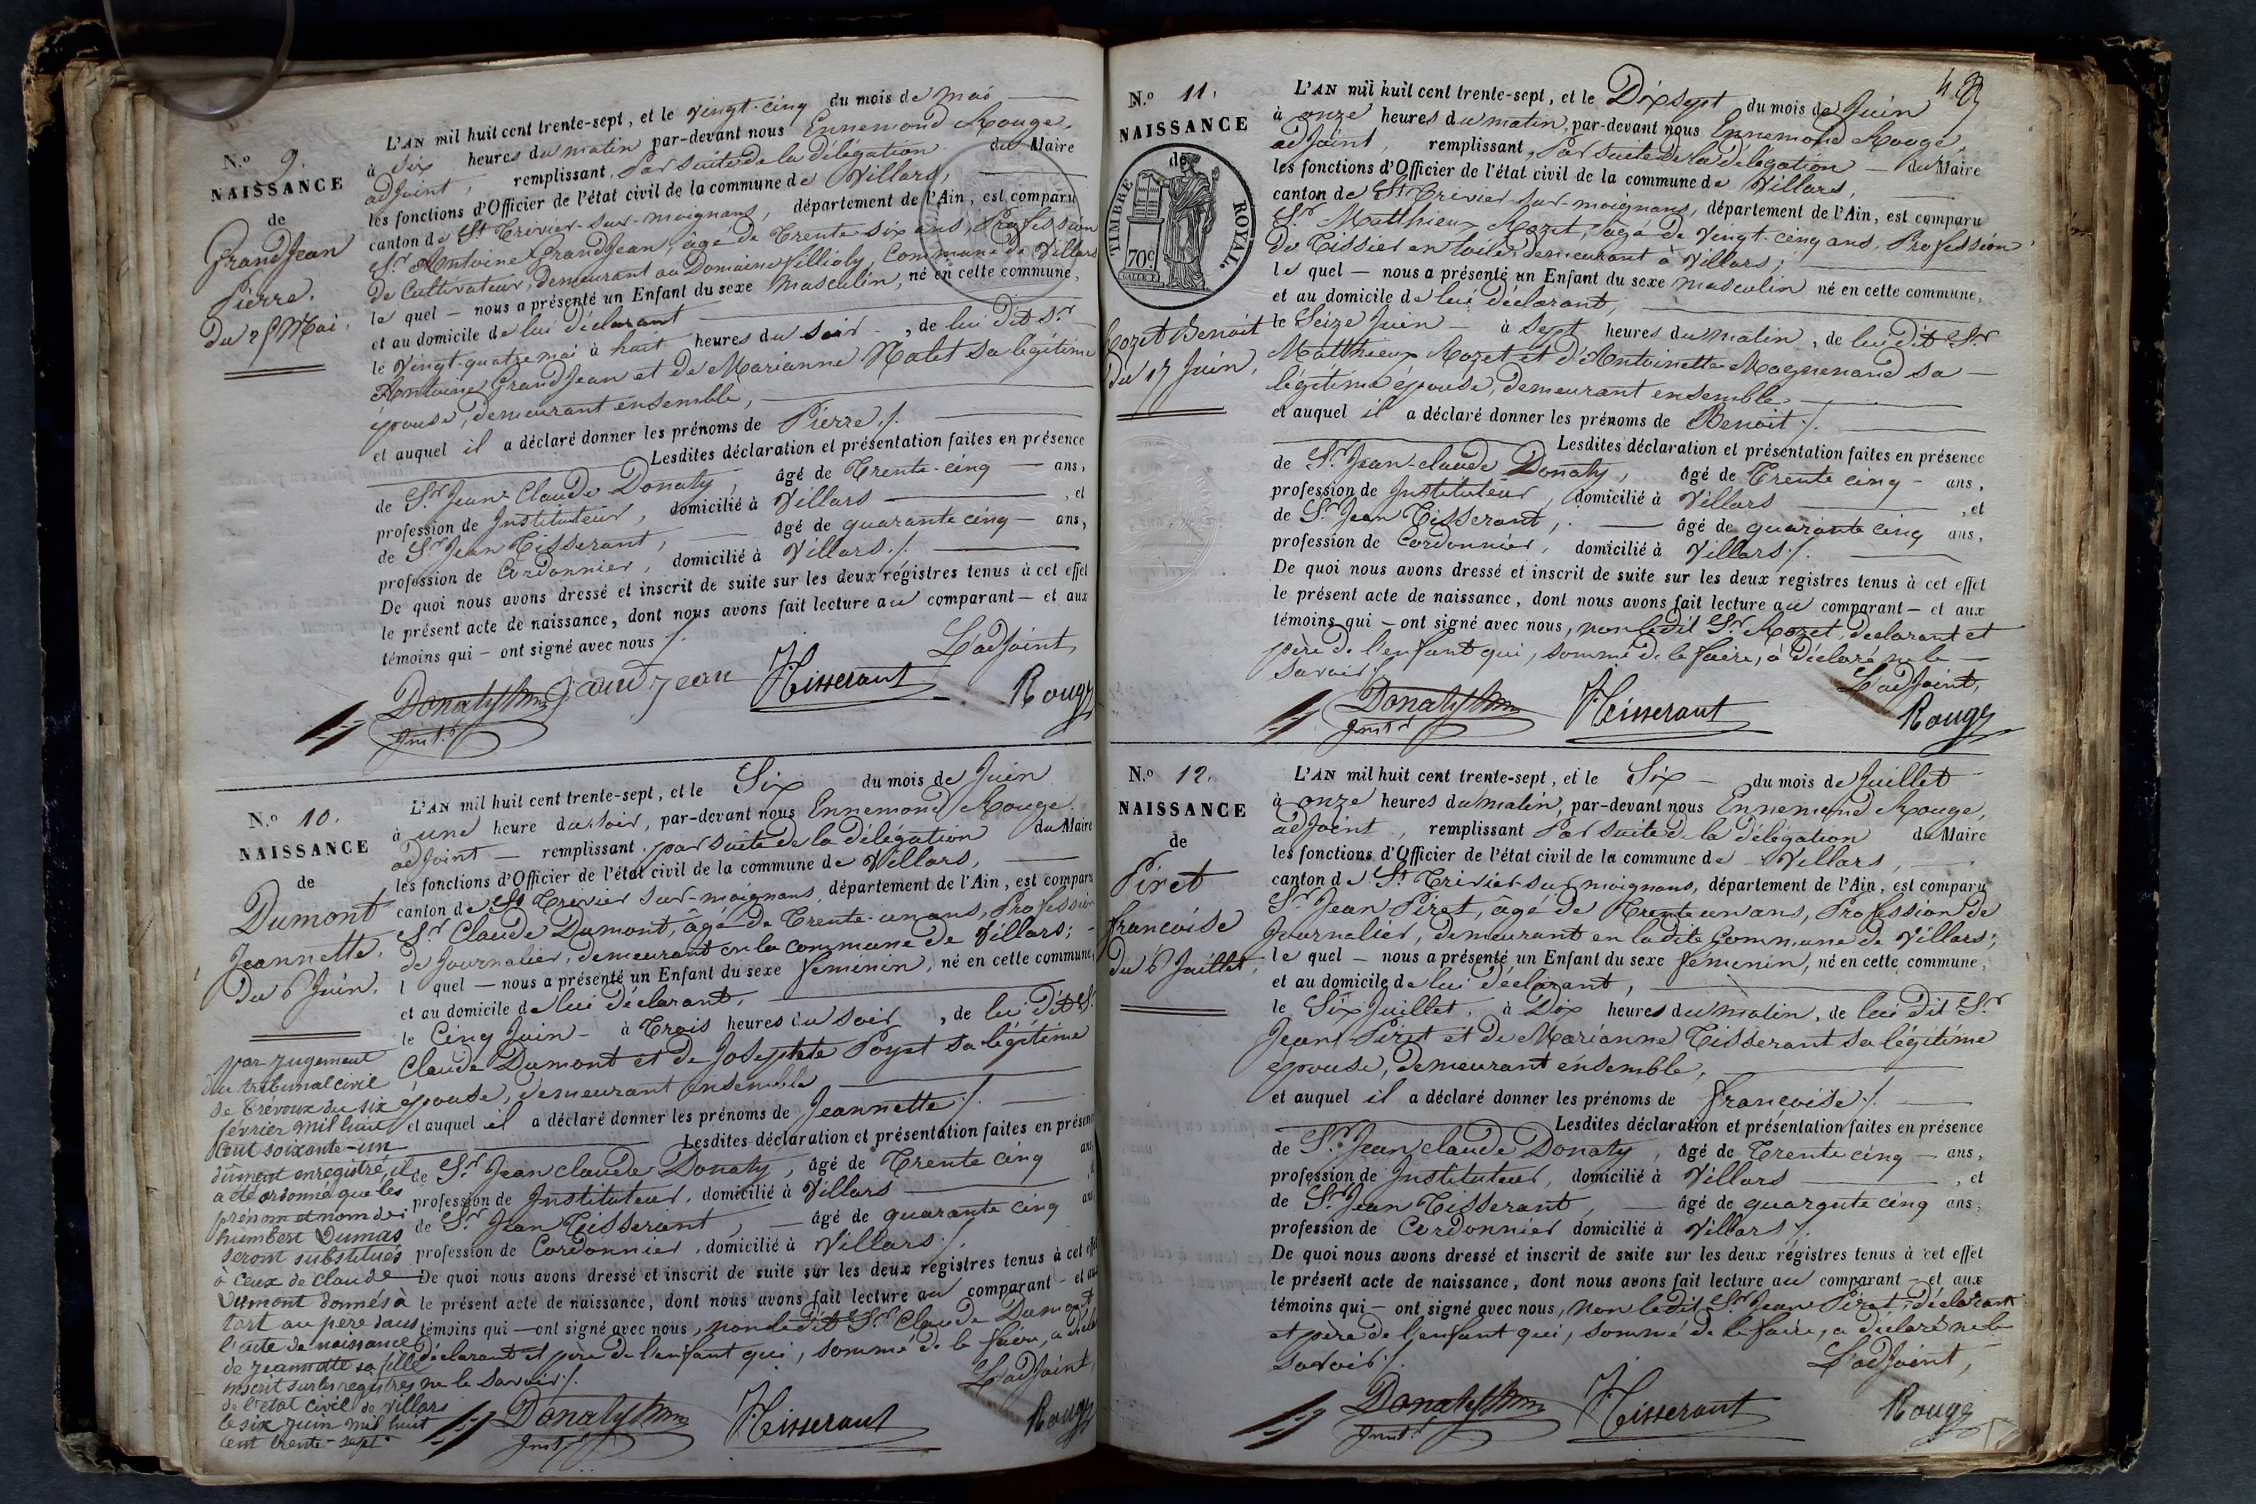 N.o 9.
NAISSANCE
de
GrandJean
Pierre.
du 25 Mai.
L'AN mil huit cent trente-sept, et le vingt-cinq du mois de mai
à six heures du matin par-devant nous Ennemond Rouge,
adjoint, remplissant, Par suite de la délégation du Maire
les fonctions d'Officier de l'état civil de la commune de Villars,
canton de St Trivier-sur-moignans, département de l'Ain, est comparu
Sr Antoine GrandJean, âgé de Trente-six ans, Profession
de Cultivateur, demeurant au Domaine Commune de Villars
le quel — nous a présenté un Enfant du sexe masculin, né en cette commune,
et au domicile de lui déclarant
le vingt-quatre mai à huit heures du soir, de lui dit Sr
Antoine GrandJean et de Marianne Nalet sa légitime
épouse, demeurant ensemble,
et auquel il a déclaré donner les prénoms de Pierre./.
Lesdites déclaration et présentation faites en présence
de Sr Jean-Claude Donaty, âgé de Trente-cinq — ans,
profession de Instituteur, domicilié à Villars, et
de Sr Jean Tisserant, âgé de quarante cinq — ans,
profession de Cordonnier, domicilié à Villars./.
De quoi nous avons dressé et inscrit de suite sur les deux régistres tenus à cet effet
le présent acte de naissance, dont nous avons fait lecture au comparant — et aux
témoins qui — ont signé avec nous ./.
L'adjoint,
Donaty grandjean JTisserant Rouge
Instr
N.o 10.
NAISSANCE
de
Dumont
Jeannette.
Du 6 Juin.
L'AN mil huit cent trente-sept, et le Six du mois de Juin
à une heure du soir, par-devant nous Ennemond Rouge.
adjoint — remplissant, par suite de la délégation du Maire
les fonctions d'Officier de l'état civil de la commune de Villars,
canton de St Trivier sur-moignans, département de l'Ain, est comparu
Sr Claude Dumont, âgé de Trente-un ans, Profession
de Journalier, demeurant en la commune de Villars;
l quel — nous a présenté un Enfant du sexe féminin, né en cette commune,
et au domicile de lui déclarant,
le Cinq Juin — à Trois heures du soir, de lui dit Sr
Claude Dumont et de Josephte Poyet sa légitime
épouse, demeurant ensemble
et auquel il a déclaré donner les prénoms de Jeannette./.
Lesdites déclaration et présentation faites en présence
de Sr Jean claude Donaty, âgé de Trente cinq ans
profession de Instituteur, domicilié à Villars
de Sr Jean Tisserant, — âgé de quarante cinq ans
profession de Cordonnier, domicilié à Villars./.
De quoi nous avons dressé et inscrit de suite sur les deux registres tenus à cet effet
le présent acte de naissance, dont nous avons fait lecture au comparant — et aux
témoins qui — ont signé avec nous, non le dit Sr Claude Dumont
déclarant et père de l'enfant qui, sommé de le faire, a déclaré
ne le savoir./.
L'adjoint,
Donaty JTisserant Rouge
Instr
par jugement
du tribunal civil
de Trévoux du six
février mil huit
cent soixante-un
dûment enregistré, il
a été ordonné que les
prénom et nom de
humbert Dumas
seront substitués
à ceux de claude
Dumont donnés à
tort au père dans
l'acte de naissance
de jeannette sa fille
inscrit sur les registres
de l'état civil de Villars
le six juin mil huit
cent trente-sept.
4
N.o 11.
NAISSANCE
de
TIMBRE ROYAL.
70c
Rozet Benoit
Du 17 Juin.
L'AN mil huit cent trente-sept, et le Dix sept du mois de Juin
à onze heures du matin, par-devant nous Ennemond Rouge,
adjoint, remplissant, Par suite de la délégation — du Maire
les fonctions d'Officier de l'état civil de la commune de Villars,
canton de St Trivier-sur-moignans, département de l'Ain, est comparu
Sr Matthieux Rozet, âgé de vingt-cinq ans, Profession
de Tissier en toile, demeurant à Villars;
le quel — nous a présenté un Enfant du sexe masculin né en cette commune,
et au domicile de lui déclarant,
le Seize Juin — à Sept heures du matin, de lui dit Sr
Matthieux Rozet et d'Antoinette Magnenand sa
légitime épouse, demeurant ensemble
et auquel il a déclaré donner les prénoms de Benoit./.
Lesdites déclaration et présentation faites en présence
de Sr Jean-claude Donaty, âgé de Trente cinq — ans,
profession de Instituteur, domicilié à Villars, et
de Sr Jean Tisserant, — âgé de quarante cinq ans,
profession de Cordonnier, domicilié à Villars./.
De quoi nous avons dressé et inscrit de suite sur les deux registres tenus à cet effet
le présent acte de naissance, dont nous avons fait lecture au comparant — et aux
témoins qui — ont signé avec nous, non ledit Sr Rozet, déclarant et
père de l'enfant qui, sommé de le faire, à déclaré ne le
savoir./.
L'adjoint,
Donaty JTisserant Rouge
Instr
N.o 12.
NAISSANCE
de
Piret
françoise
du 6 Juillet.
L'AN mil huit cent trente-sept, et le Six — du mois de Juillet
à onze heures du matin, par-devant nous Ennemond Rouge,
adjoint, remplissant Par suite de la délégation du Maire
les fonctions d'Officier de l'état civil de la commune de Villars,
canton de St Trivier-sur moignans, département de l'Ain, est comparu
Sr Jean Piret, âgé de Trente un ans, Profession de
Journalier, demeurant en la dite Commune de Villars;
le quel — nous a présenté un Enfant du sexe féminin, né en cette commune,
et au domicile de lui déclarant,
le Six Juillet, à Dix heures du matin, de lui dit Sr
Jean Piret et de Marianne Tisserant sa légitime
épouse, demeurant ensemble,
et auquel il a déclaré donner les prénoms de françoise./.
Lesdites déclaration et présentation faites en présence
de Sr Jean claude Donaty, âgé de Trente cinq — ans,
profession de Instituteur, domicilié à Villars, et
de Sr Jean Tisserant, — âgé de quarante cinq ans,
profession de Cordonnier domicilié à Villars./.
De quoi nous avons dressé et inscrit de suite sur les deux régistres tenus à cet effet
le présent acte de naissance, dont nous avons fait lecture au comparant — et aux
témoins qui — ont signé avec nous, non ledit Sr Jean Piret, déclarant
et père de l'enfant qui, sommé de le faire, a déclaré ne le
savoir./.
L'adjoint,
Donaty JTisserant Rouge
Instr